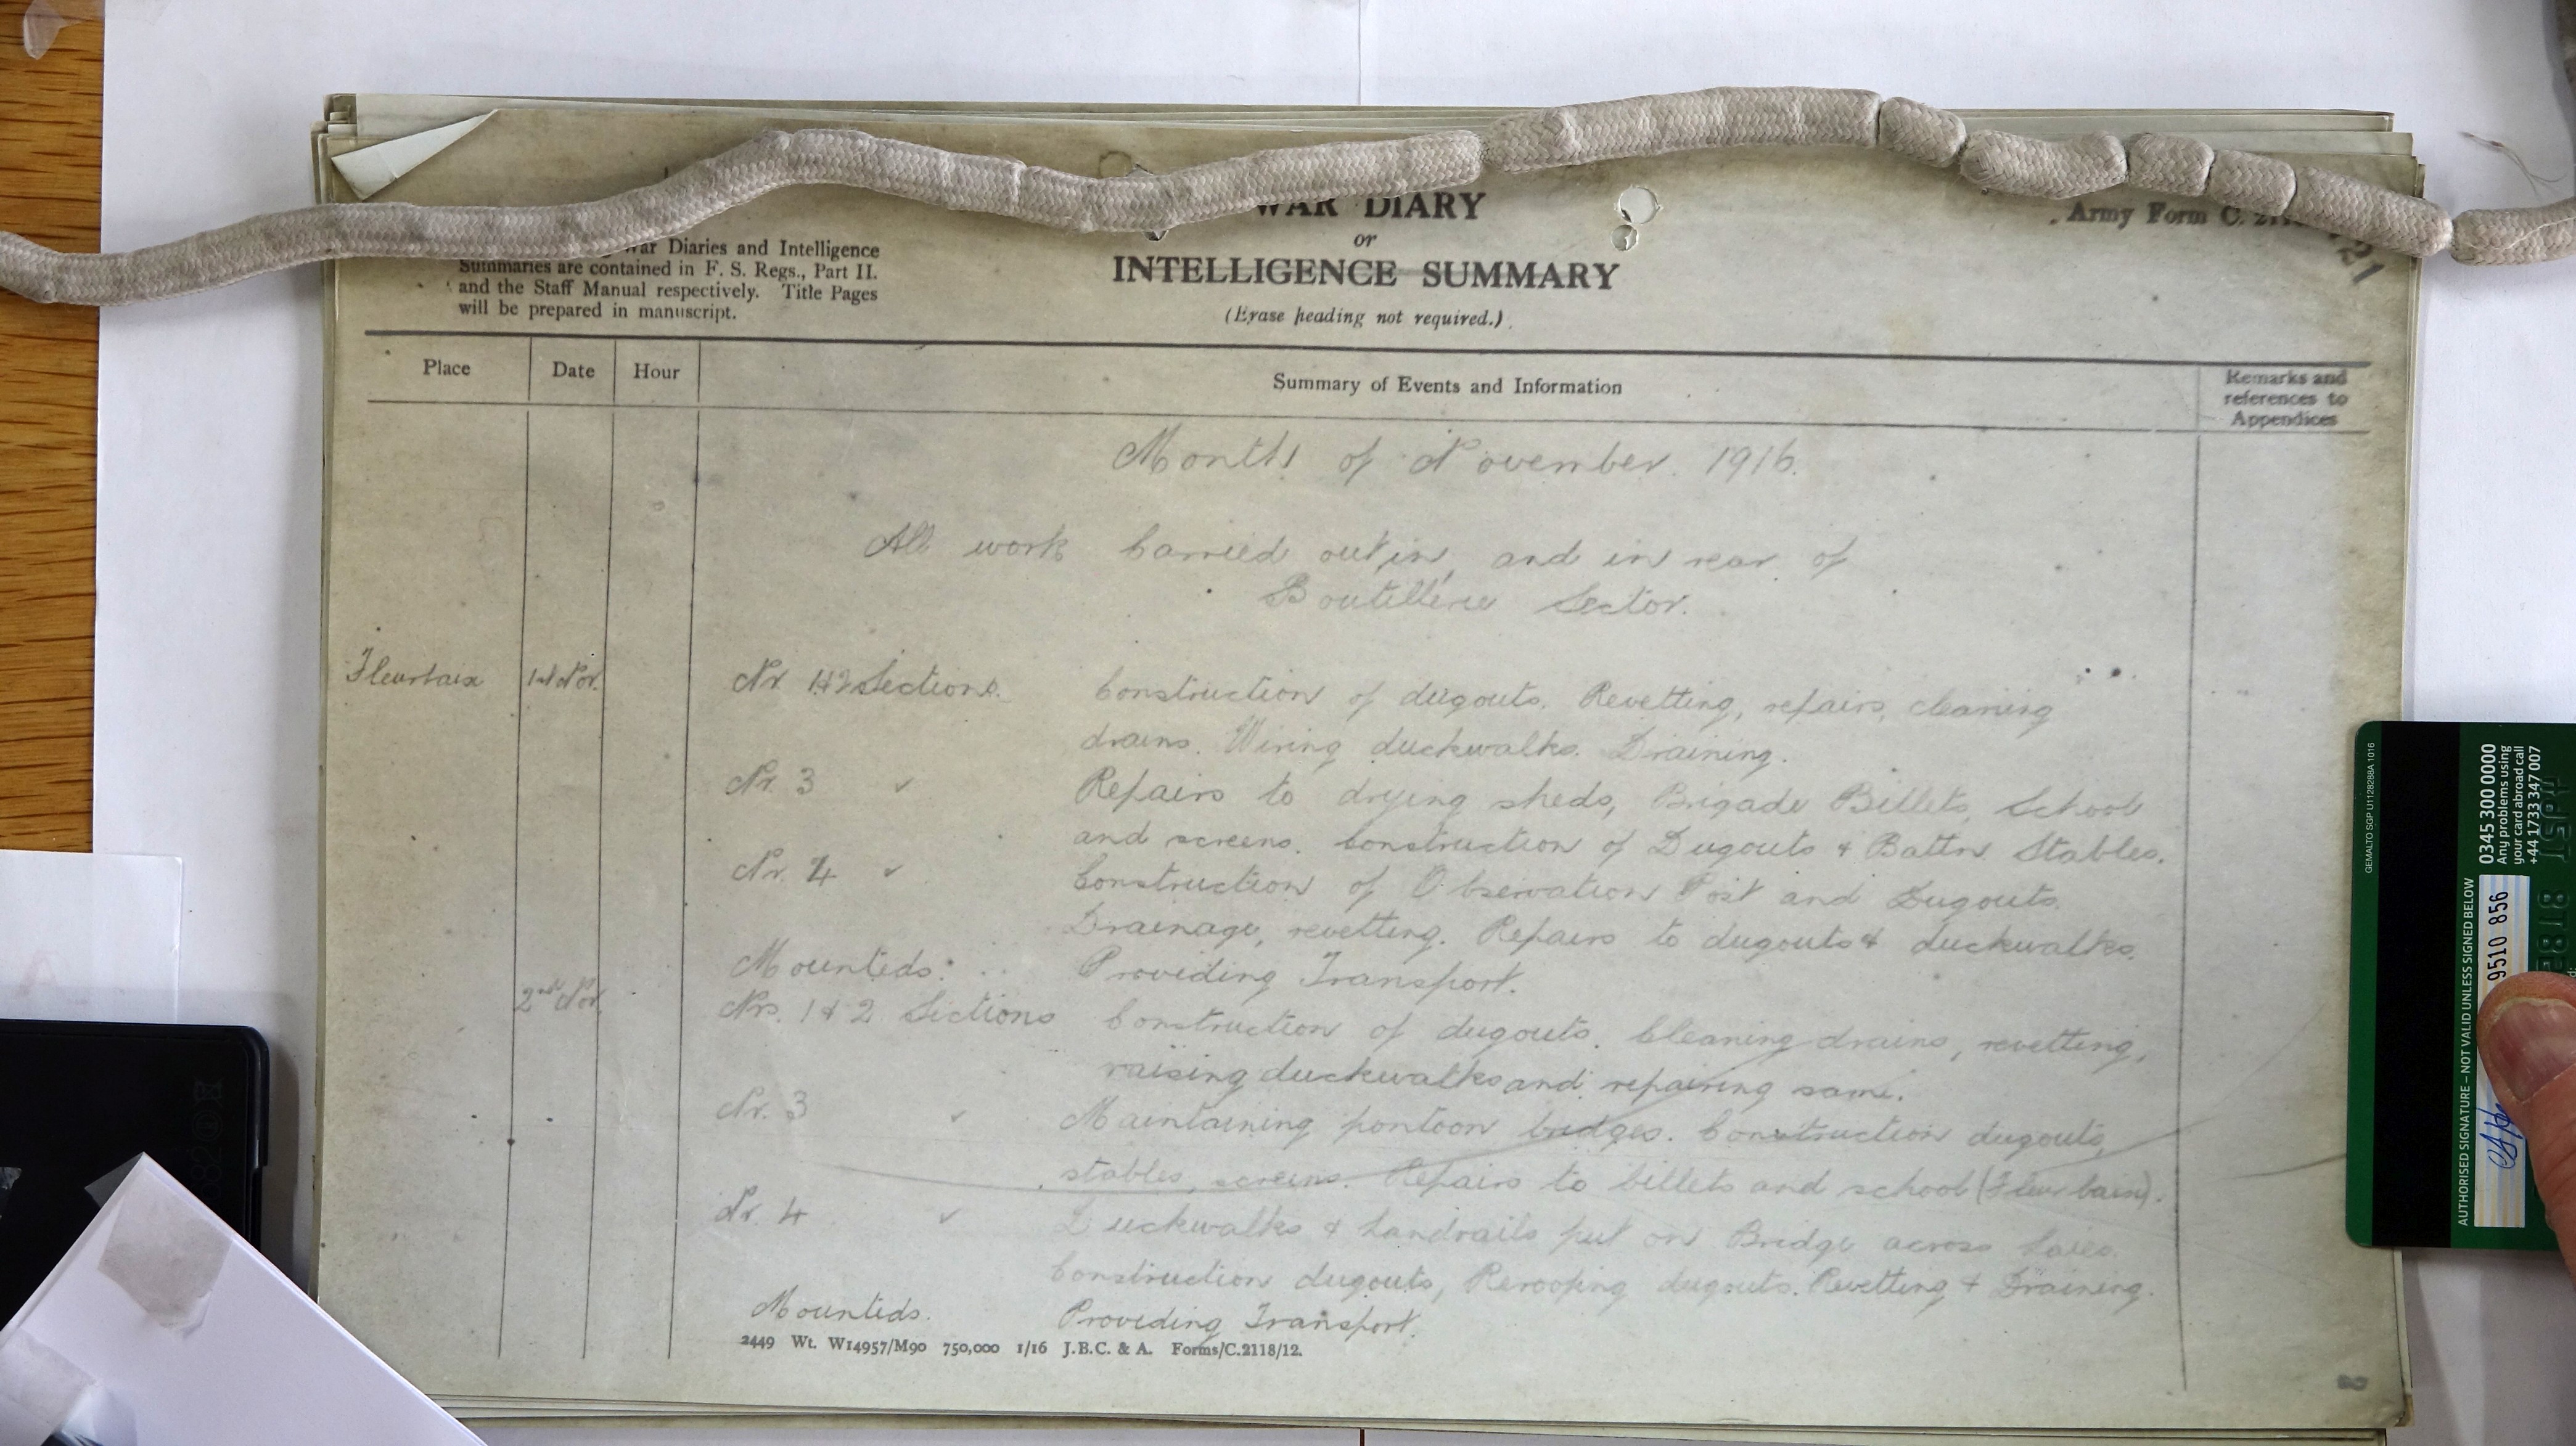 WAR DIARY
or
INTELLIGENCE SUMMARY
(Erase heading not required.)
Army Form C.
21
War Diaries and Intelligence
Summaries are contained in F. S. Regs., Part II.
and the Staff Manual respectively. Title Pages
will be prepared in manuscript.
Place Date Hour Summary of Events and Information Remarks and references to Appendices
Month of November. 1916.
All work carried out in, and in rear of
Boutillerie Sector.
Fleurbaix 1st Nov. Nr 1&2 Sections. Construction of dugouts. Revetting, repairs, cleaning
drains. Wiring duckwalks. Draining.
Nr. 3 " Repairs to drying sheds, Brigade Billets, School
and screens. Construction of Dugouts & Battn Stables.
Nr. 4 " Construction of Observation Post and Dugouts.
Drainage, revetting. Repairs to dugouts & duckwalks.
Mounteds. Providing Transport.
2nd Nov. Nrs. 1 & 2 Sections Construction of dugouts. Cleaning drains, revetting,
raising duckwalks and repairing same.
Nr. 3 " Maintaining pontoon bridges. Construction dugouts,
stables, screens. Repairs to billets and school (Fleurbaix).
Nr. 4 " Duckwalks & handrails put on Bridge across
Construction dugouts, Reroofing dugouts. Revetting & Draining.
Mounteds. Providing Transport.
2449 Wt. W14957/M90 750,000 1/16 J.B.C. & A. Forms/C.2118/12.
GEMALTO SGP U1128288A 1016
0345 300 0000
Any problems using
your card abroad call
+44 1733 347 007
AUTHORISED SIGNATURE – NOT VALID UNLESS SIGNED BELOW
9510 856